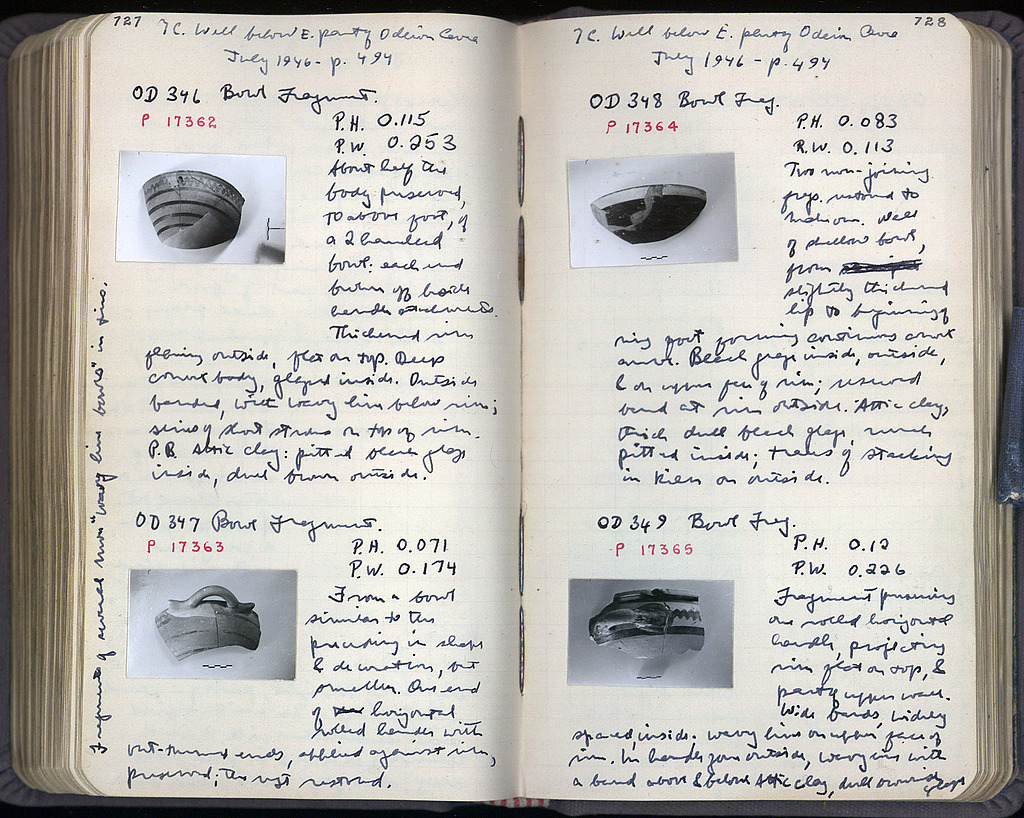 727
7C. Well below E. part of Odeion Cavea
July 1946 - p. 494
OD 346 Bowl Fragment.
P 17362
P.H. 0.115
P.W. 0.253
About half the
body preserved,
to above foot, of
a 2 handled
bowl: each end
broken off beside
handle attachments.
Thickened rim
flaring outside, flat on top. Deep
convex body, glazed inside. Outside
banded, with wavy line below rim;
series of short strokes on top of rim.
P.B. Attic clay: pitted black glaze
inside, dull brown outside.
OD 347 Bowl Fragment.
P 17363
P.H. 0.071
P.W. 0.174
From a bowl
similar to the
preceding in shape
& decoration, but
smaller. One end
of horizontal
rolled handle with
out-turned ends, applied against rim,
preserved; the rest restored.
Fragments of several more "wavy line bowls" in tins.
728
7C. Well below E. part of Odeion Cavea
July 1946 - p. 494
OD 348 Bowl Frag.
P 17364
P.H. 0.083
R.W. 0.113
Two non-joining
frags. restored to
Wall
of shallow bowl,
from
slightly thickened
lip to beginning of
ring foot forming continuous convex
curve. Black glaze inside, outside,
& on upper face of rim; reserved
band at rim outside. Attic clay,
thick dull black glaze, much
pitted inside; traces of stacking
in kiln on outside.
OD 349 Bowl Frag.
P 17365
P.H. 0.12
P.W. 0.226
Fragment preserving
one rolled horizontal
handle, projecting
rim flat on top, &
part of upper wall.
Wide bands, widely
spaced, inside. Wavy line on upper face of
rim. In handle zone outside, wavy line with
a band above & below. Attic clay, dull glaze